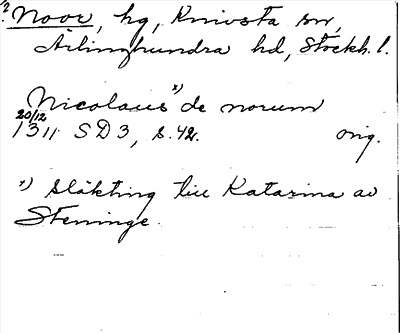 ? Noor, hg, Knivsta sn,
Ärlinghundra hd, Stockh. l.
Nicolaus x) de norum
20/12
1311 SD 3, s. 42. orig.
x) släkting till Katarina av
Steninge.